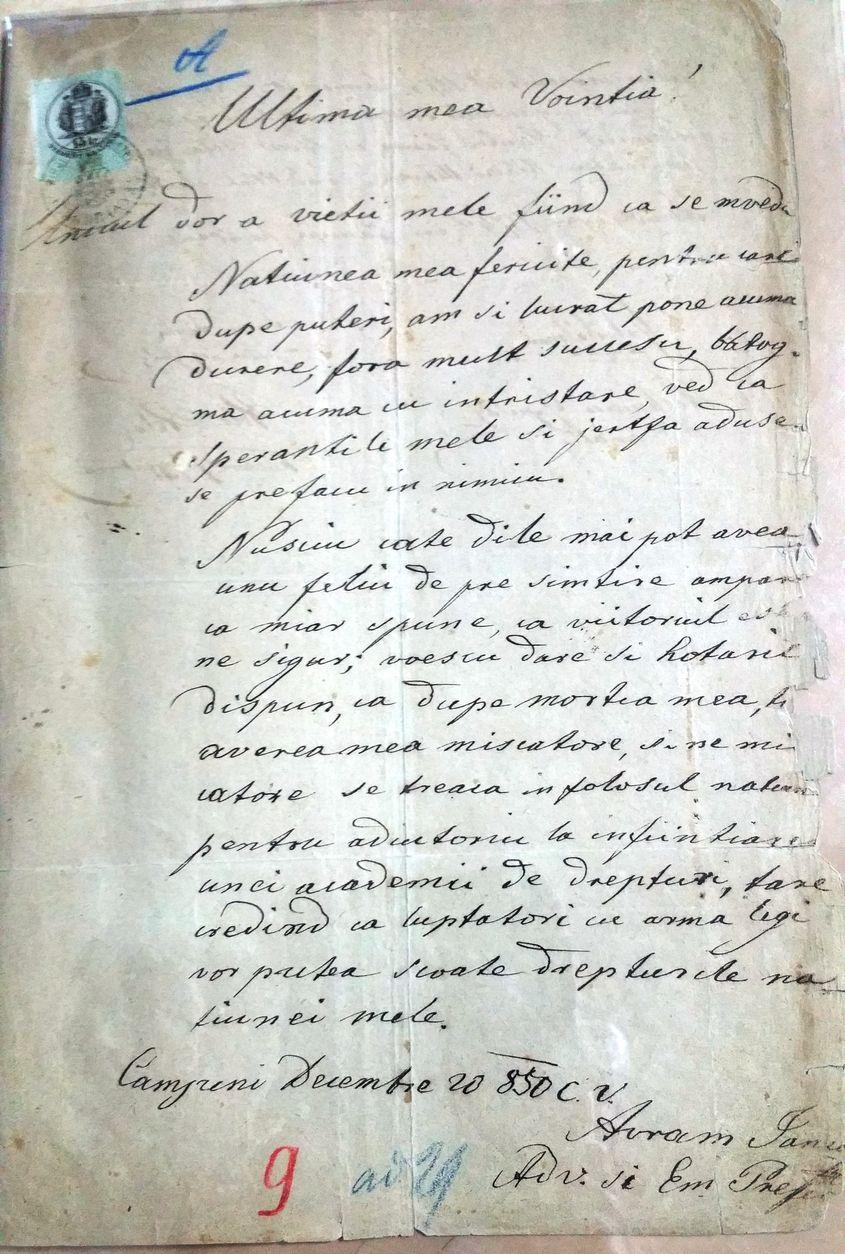 A
15 kr.
Ultima mea Vointia!
Unicul dor a vietii mele fiind ca se mved
Natiunea mea fericite, pentru care
dupe puteri, am si lucrat pone acuma
durere, fora mult succesu, batog-
ma acuma cu intristare, ved ca
sperantile mele si jertfa aduse
se prefacu in nimicu.
Nusciu cate dile mai pot avea
unu feliu de pre simtire ampare
ca miar spune, ca viitoriul este
ne sigur; voescu dare si hotarit
dispun, ca dupe mortea mea, t
averea mea miscatore, si ne mi
catore se treaca in folosul natiun
pentru adiutoriu la infiintiare
unei academii de drepturi, tare
credind ca luptatori cu arma legi
vor putea scoate drepturile na
tiunei mele.
Campeni Decembre 20 850 C. V.
Avram Iancu
Adv. si Em. Prefect
9 ad 21